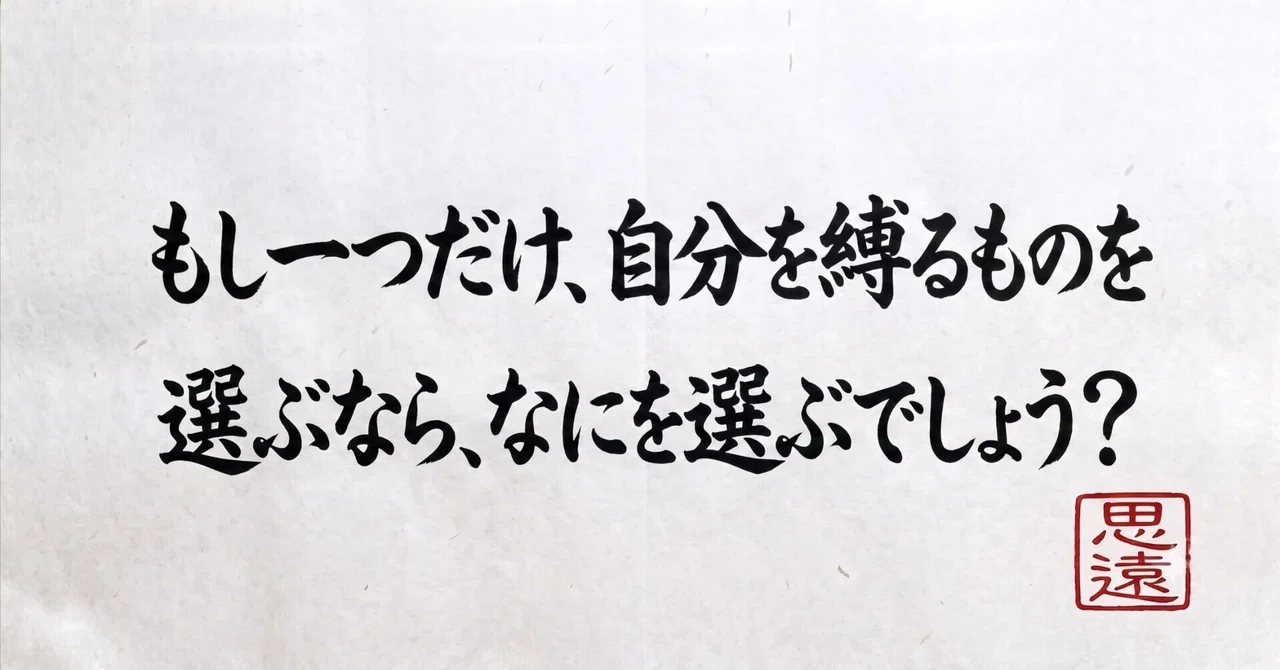 もし一つだけ、自分を縛るものを
選ぶなら、なにを選ぶでしょう?
思遠